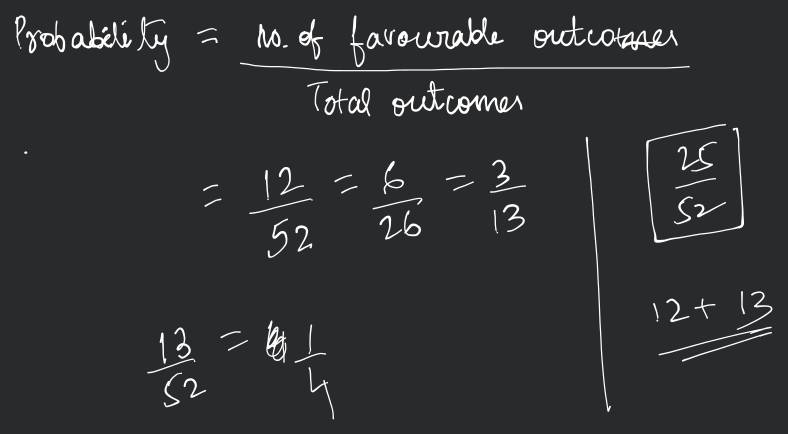 Probability = no. of favourable outcomes
Total outcomes
= 12/52 = 6/26 = 3/13
13/52 = 1/4
25/52
12 + 13